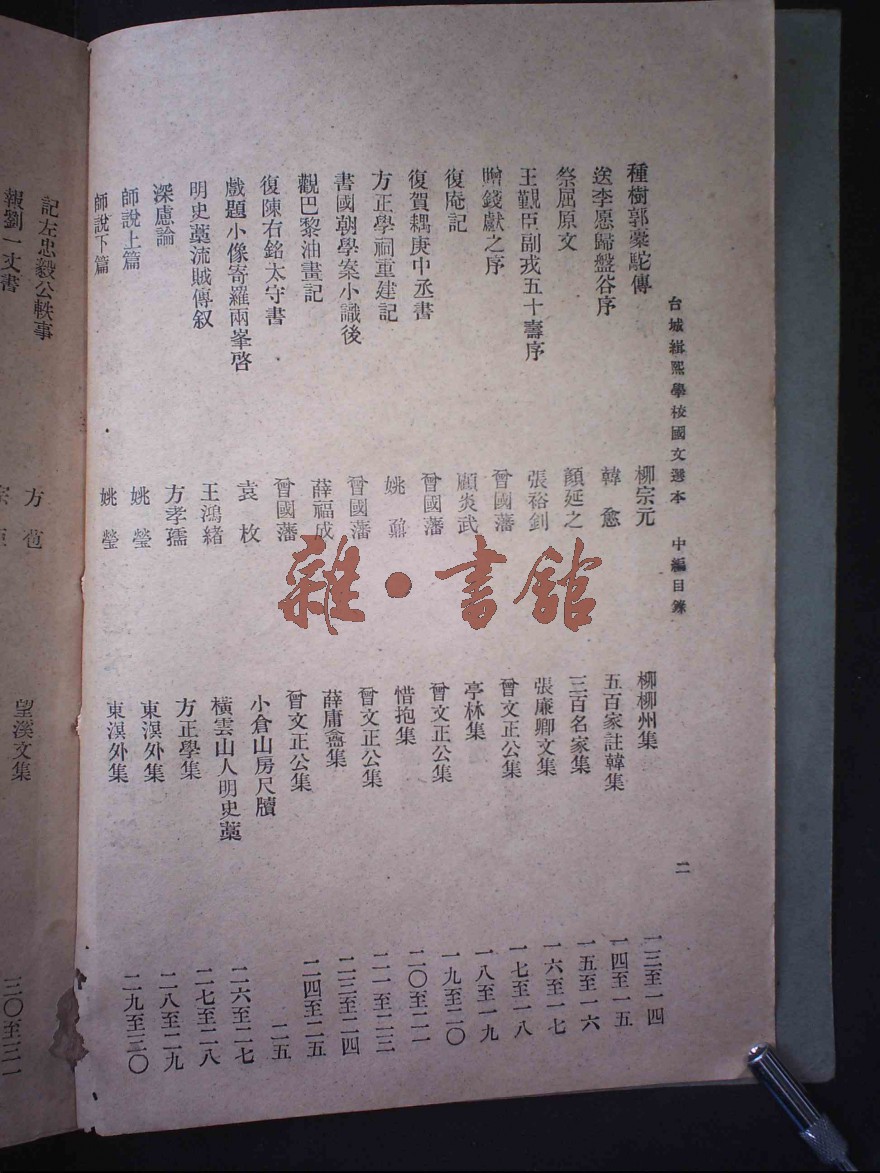 台城緝熙學校國文選本　中編目錄　二
種樹郭橐駝傳　柳宗元　柳柳州集　一三至一四
送李愿歸盤谷序　韓愈　五百家註韓集　一四至一五
祭屈原文　顏延之　三百名家集　一五至一六
王覲臣副戎五十壽序　張裕釗　張廉卿文集　一六至一七
贈錢獻之序　曾國藩　曾文正公集　一七至一八
復庵記　顧炎武　亭林集　一八至一九
復賀耦庚中丞書　曾國藩　曾文正公集　一九至二〇
方正學祠重建記　姚鼐　惜抱集　二〇至二一
書國朝學案小識後　曾國藩　曾文正公集　二一至二三
觀巴黎油畫記　薛福成　薛庸盦集　二三至二四
復陳右銘太守書　曾國藩　曾文正公集　二四至二五
戲題小像寄羅兩峯啓　袁枚　小倉山房尺牘　二五
明史藁流賊傳叙　王鴻緒　橫雲山人明史藁　二六至二七
深慮論　方孝孺　方正學集　二七至二八
師說上篇　姚瑩　東溟外集　二八至二九
師說下篇　姚瑩　東溟外集　二九至三〇
記左忠毅公軼事　方苞　望溪文集　三〇至三一
報劉一丈書
雜·書館